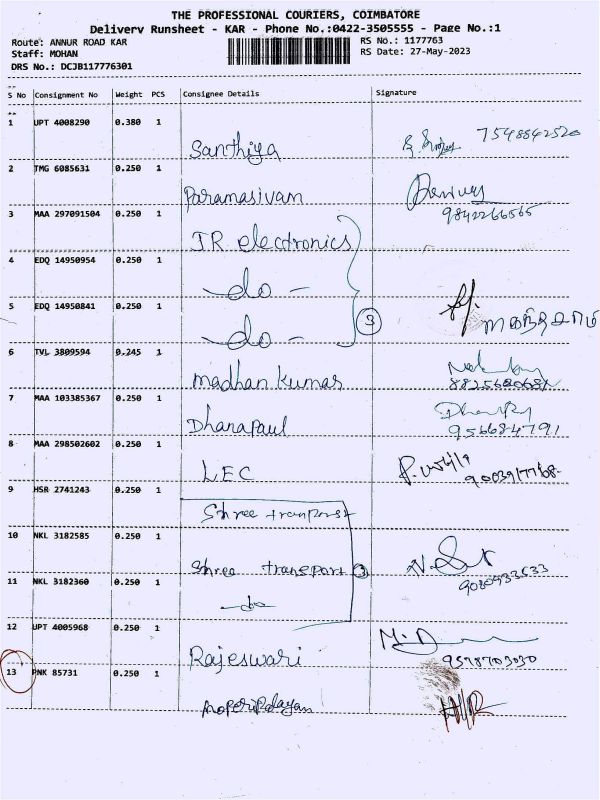 THE PROFESSIONAL COURIERS, COIMBATORE
Delivery Runsheet - KAR - Phone No.:0422-3505555 - Page No.:1
Route: ANNUR ROAD KAR
RS No.: 1177763
Staff: MOHAN
RS Date: 27-May-2023
DRS No.: DCJB117776301
S No Consignment No Weight PCS Consignee Details Signature
1 UPT 4008290 0.380 1
Santhiya 7548842520
2 TMG 6085631 0.250 1
Paramasivam
3 MAA 297091504 0.250 1 9842266565
JR electronics
4 EDQ 14950954 0.250 1
-do-
5 EDQ 14950841 0.250 1 3
-do-
6 TVL 3809594 0.245 1
madhan kumar
7 MAA 103385367 0.250 1
Dhanapaul 9566847791
8 MAA 298502602 0.250 1
LEC
9 HSR 2741243 0.250 1
Shree tranport
10 NKL 3182585 0.250 1
Shree transport 3
11 NKL 3182360 0.250 1
-do-
12 UPT 4005968 0.250 1
Rajeswari 9578703030
13 PNK 85731 0.250 1